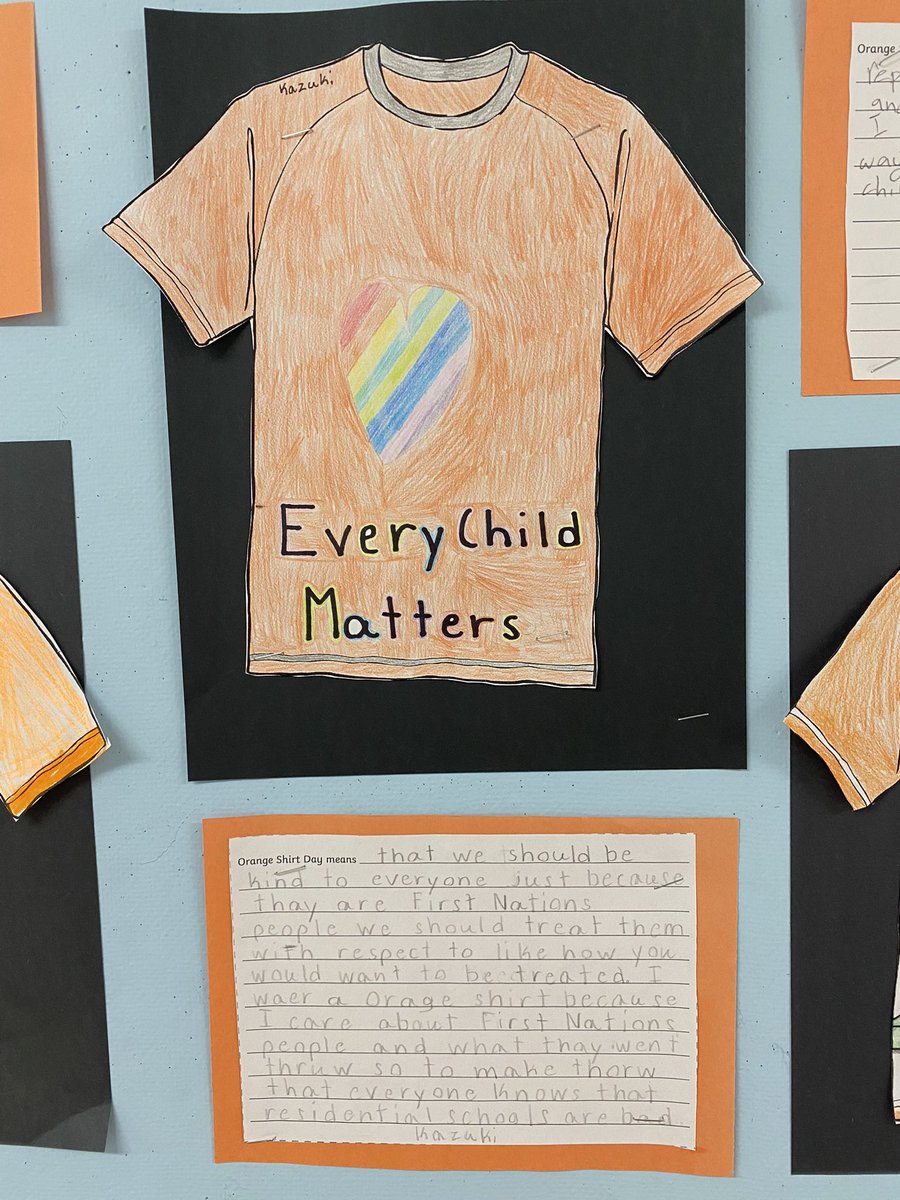 Kazuki
Every Child
Matters
Orange Shirt Day means that we should be
kind to everyone just because
thay are First Nations
people we should treat them
with respect to like how you
would want to be treated. I
waer a Orage shirt because
I care about First Nations
people and what thay went
thruw so to make thorw
that everyone knows that
residential schools are bad.
Kazuki
Orange
rep
and
I
way
chi